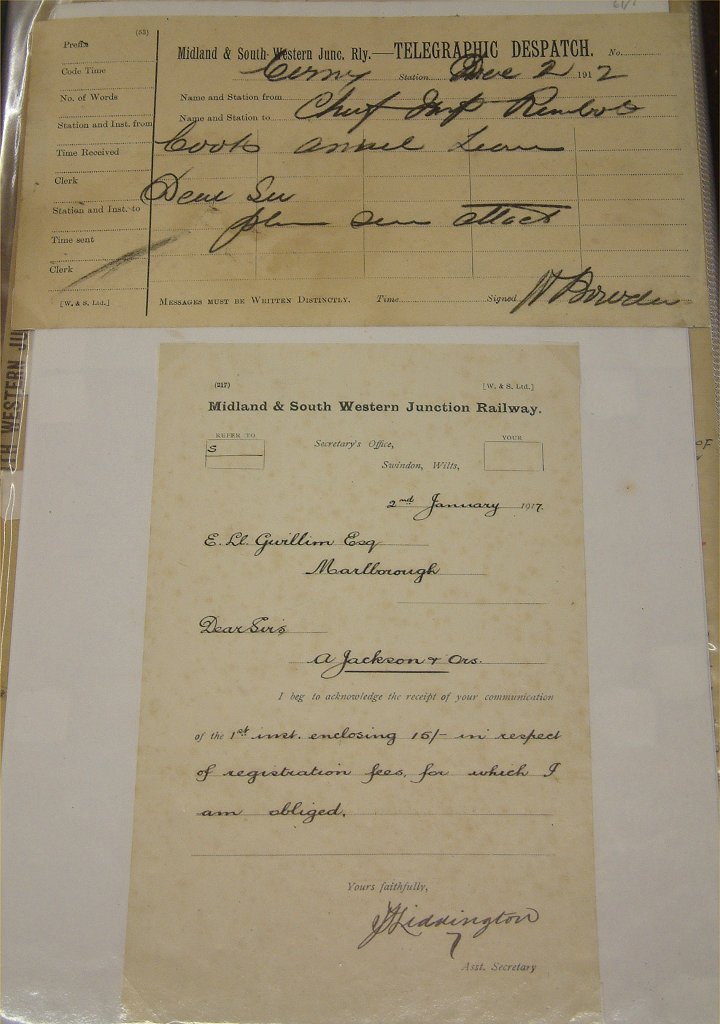 (53)
Prefix
Code Time
No. of Words
Station and Inst. from
Time Received
Clerk
Station and Inst. to
Time sent
Clerk
[W. & S. Ltd.]
Midland & South Western Junc. Rly.—TELEGRAPHIC DESPATCH. No.
Station Dec 2 1912
Name and Station from
Name and Station to
Dear Sir
attach
MESSAGES MUST BE WRITTEN DISTINCTLY. Time Signed W Bowden
TH WESTERN JU
OF
(217) [W. & S. Ltd.]
Midland & South Western Junction Railway.
REFER TO
S
Secretary's Office,
Swindon, Wilts,
YOUR
2nd January 1917.
E. Ll. Gwillim Esq
Marlborough
Dear Sirs
A Jackson & Ors.
I beg to acknowledge the receipt of your communication
of the 1st inst. enclosing 15/- in respect
of registration fees, for which I
am obliged.
Yours faithfully,
Liddington
Asst. Secretary